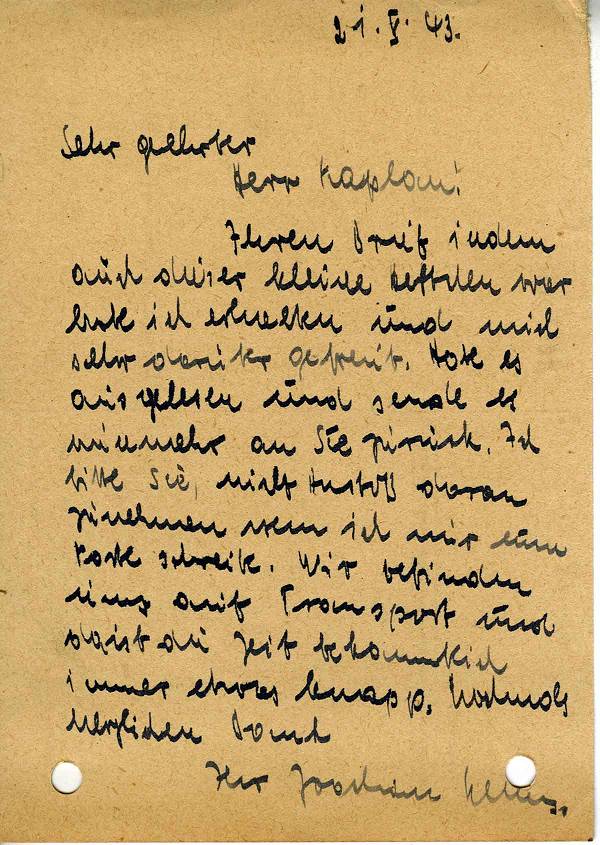 21. V. 43.
Sehr geehrter
Herr Kaplan!
Ihren Brief indem
auch dieser kleine Heftchen war
habe ich erhalten und mich
sehr darüber gefreut. Habe es
ausgelesen und sende es
nunmehr an Sie zurück. Ich
bitte Sie, nicht Anstoß daran
zunehmen wen ich nur eine
Karte schreib. Wir befinden
uns auf Transport und
da ist die Zeit bekanntlich
immer etwas knapp. Nochmals
herzlichen Dank
Ihr Joachim